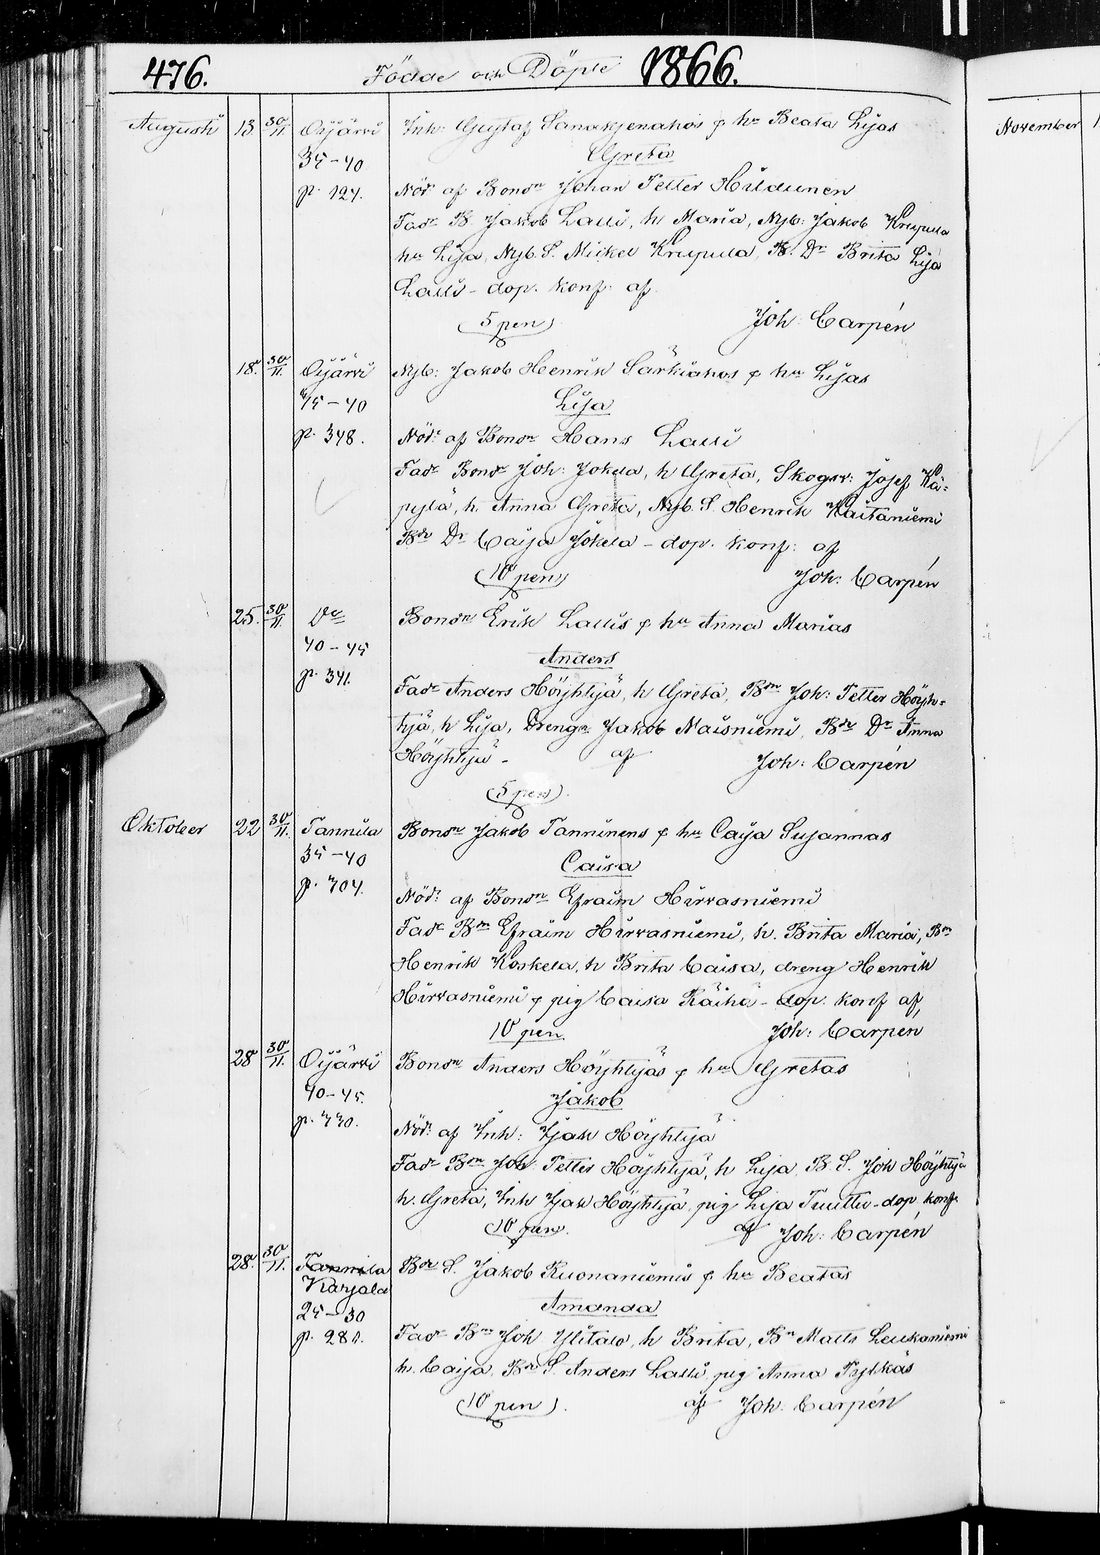 476. Födde och Döpte 1866.
Augusti 13 30/11. Oijärvi Inh: Gustaf Sanaksenahos & hu Beata Lisas
35-40 Greta
p. 124. Nöd: af Bondn Johan Petter Hildunen
Fadr B. Jakob Lalli, h Maria, Nyb: Jakob Krupula
hu Lisa, Nyb. S. Mickel Krupula, B. Dr Brita Lisa
Lalli - dop. konf. af
(5 pen) Joh: Carpén
18. 30/11. Oijärvi Nyb: Jakob Henrik Särkiahos & hu Lisas
45-40 Lisa
p. 348. Nöd: af Bondn Hans Lalli
Fadr Bondn Joh: Jokela, h Greta, Skogsv: Josef Kä-
pylä, h. Anna Greta, Nyb. S. Henrik Kaitaniemi
Bde Dr Caisa Jokela - dop. konf: af
(10 pen) Joh: Carpén
25. 30/11. Do Bondn Erik Lallis & hu Anna Marias
40-45 Anders
p. 341. Fadr Anders Höyhtyä, h Greta, Bn Joh: Petter Höyh-
tyä, h Lisa, Drengn Jakob Naisniemi, Bde Dr Anna
Höyhtyä - af Joh: Carpén
(5 pen)
Oktober 22 30/11. Tannila Bondn Jakob Tanninens & hu Caisa Susannas
35-40 Caisa
p. 704. Nöd: af Bondn Efraim Hirvasniemi
Fadr Bn Efraim Hirvasniemi, h. Brita Maria, Bn
Henrik Koskela, h Brita Caisa, dreng Henrik
Hirvasniemi & pig Caisa Räihä - dop. konf af
10 pen Joh: Carpén
28 30/11. Oijärvi Bondn Anders Höyhtyäs & hu Gretas
40-45. Jakob
p. 330. Nöd: af Inh: Isak Höyhtyä
Fadr Bn Joh: Petter Höyhtyä, h Lisa, B. S. Joh Höyhtyä
h. Greta, Inh Isak Höyhtyä, pig Lisa Tuuttu - dop. konf.
(10 pen. af Joh: Carpén
28. 30/11. Tannila Bde S. Jakob Kuonaniemis & hu Beatas
Karjala
25-30 Amanda
p. 281. Fadr Bn Joh Ylitalo, h Brita, Bn Matts Leukaniemi
h. Caisa, Bde S. Anders Lalli, pig Anna Pytkäs
(10 pen). af Joh: Carpén
November